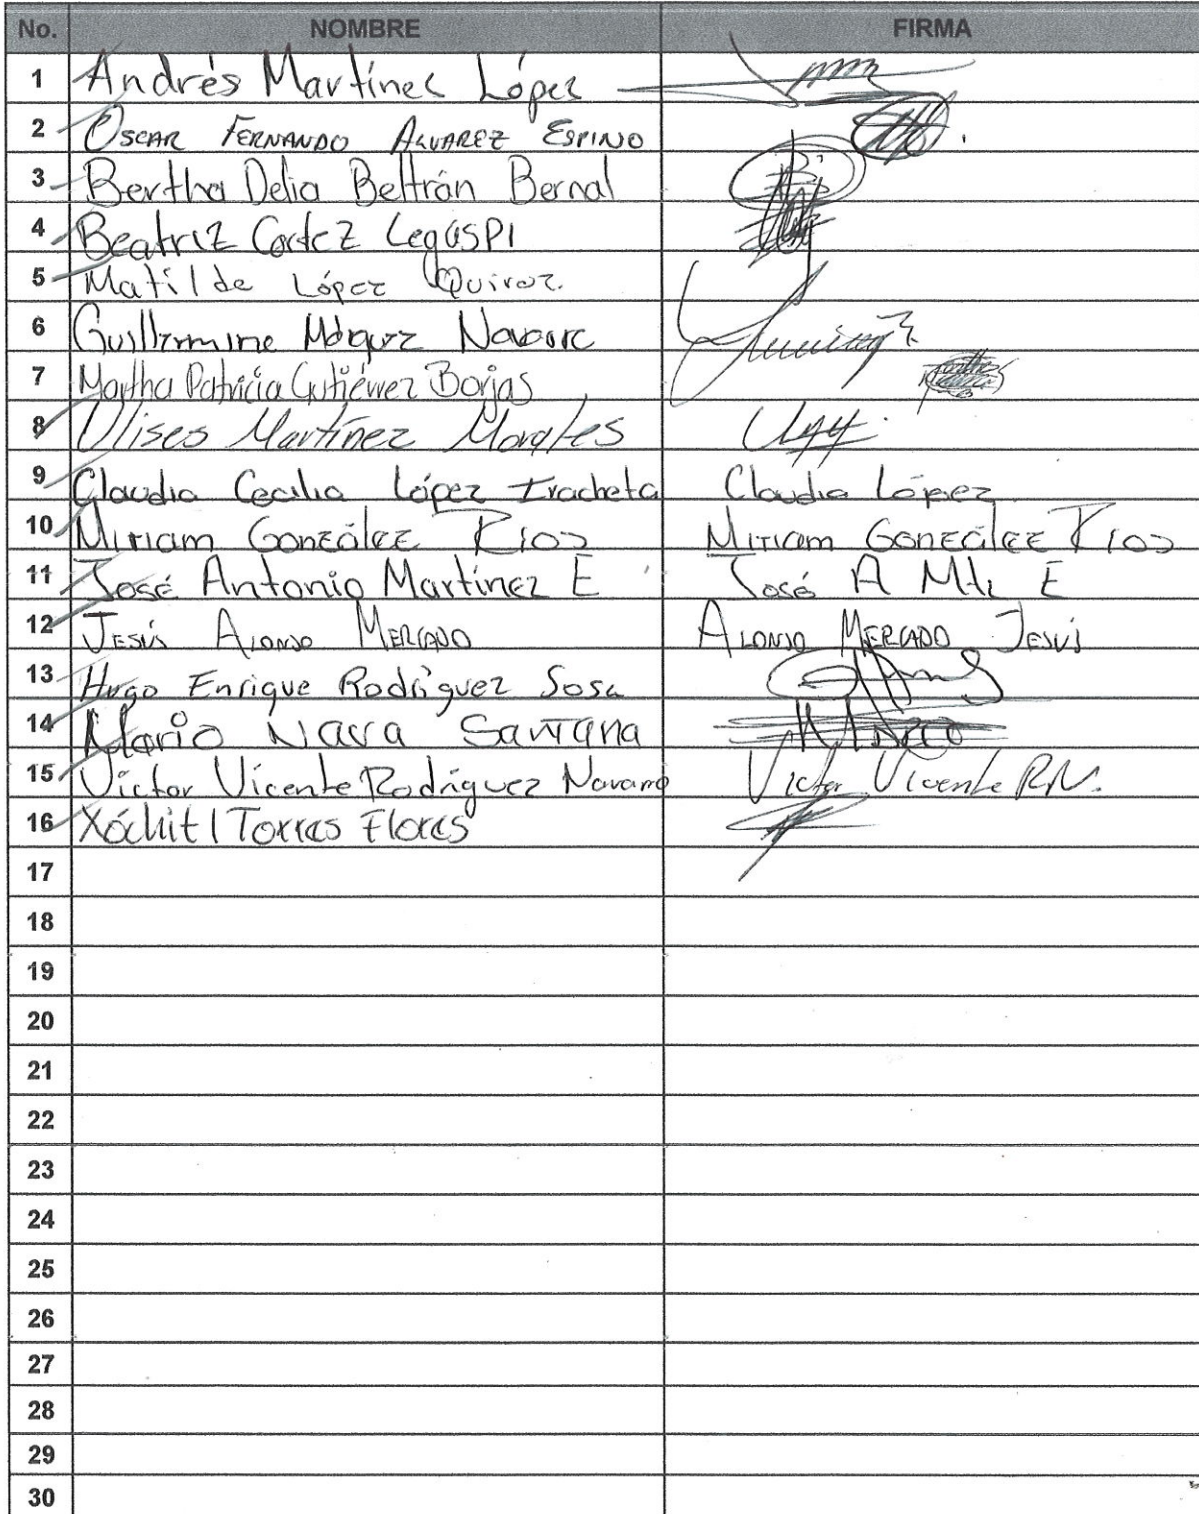 No. NOMBRE FIRMA
1 Andrés Martínez López
2 OSCAR FERNANDO ALVAREZ ESPINO
3 Bertha Delia Beltrán Bernal
4 Beatriz Cortez Legaspi
5 Matilde López Quiroz.
6 Márquez
7 Martha Patricia Gutiérrez Borjas
8 Ulises Martínez Morales
9 Claudia Cecilia López Iracheta Claudia López
10 Miriam González Rios Miriam González Rios
11 José Antonio Martínez E José A Mtz E
12 JESÚS ALONSO MERCADO ALONSO MERCADO JESÚS
13 Hugo Enrique Rodríguez Sosa
14 Mario Nava Santana
15 Victor Vicente Rodríguez Navarro Victor Vicente R.N.
16 Xóchitl Torres Flores
17
18
19
20
21
22
23
24
25
26
27
28
29
30